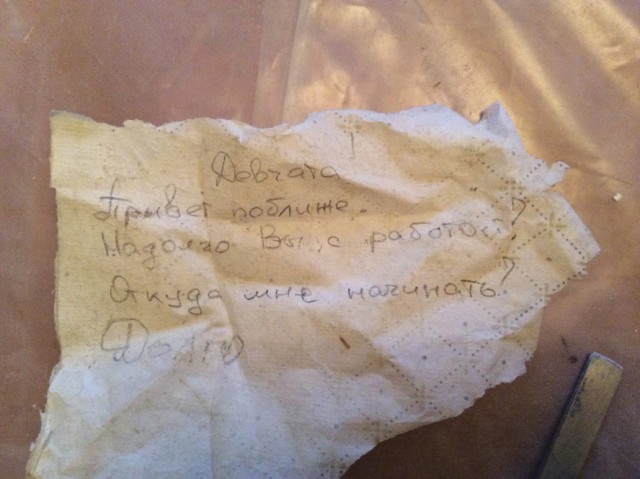 Девчата
Привет поближе.
Надолго Вы с работой?
Откуда мне начинать?